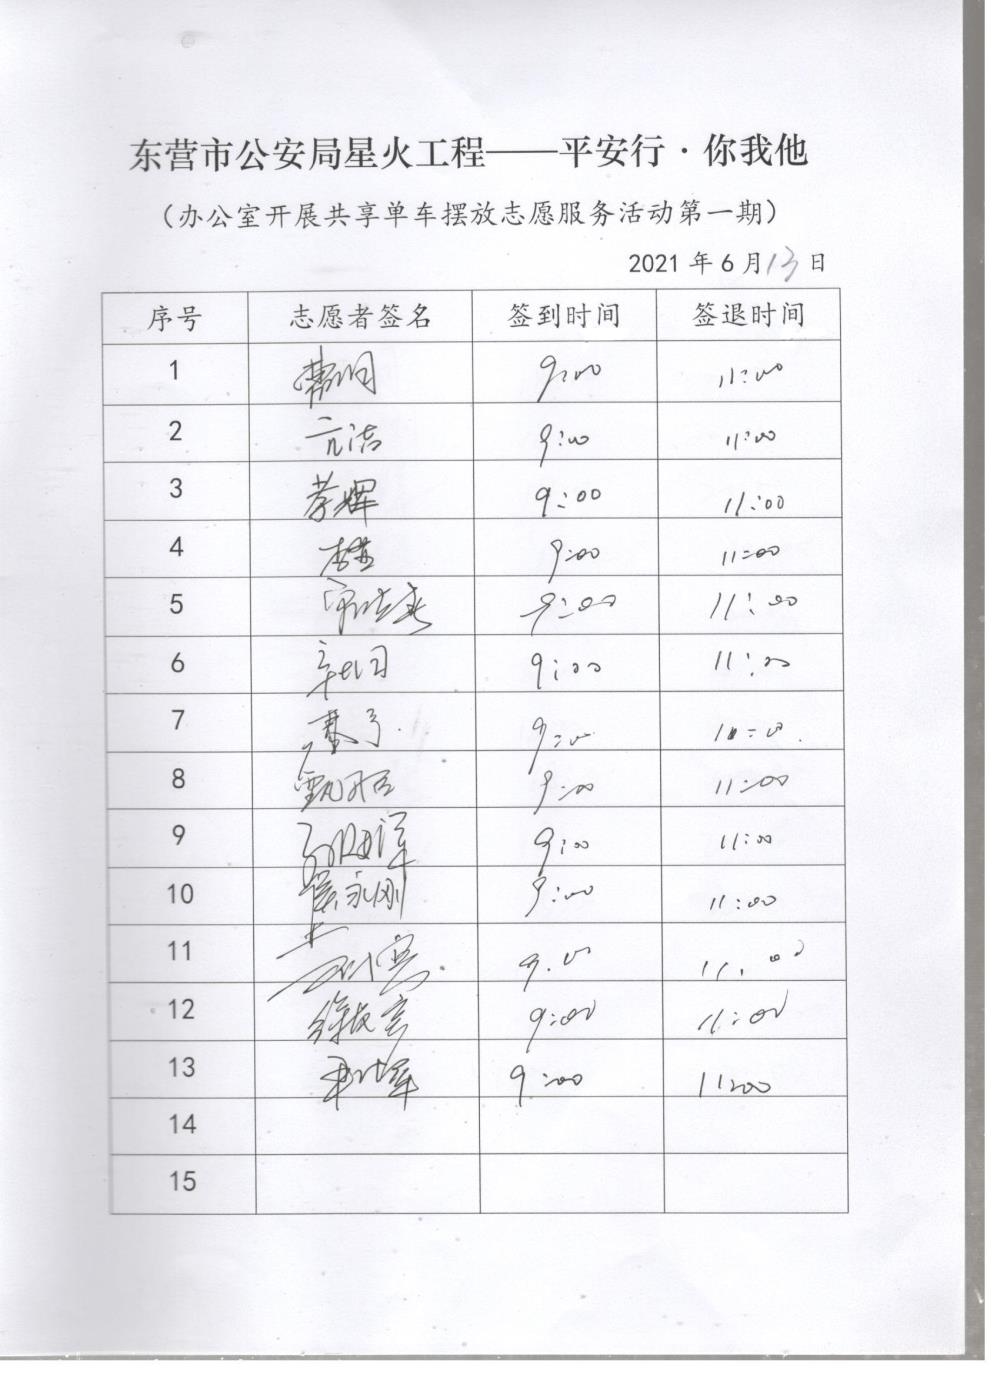 东营市公安局星火工程——平安行·你我他
（办公室开展共享单车摆放志愿服务活动第一期）
2021 年 6 月 13 日
序号 志愿者签名 签到时间 签退时间
1 9:00 11:00
2 亓洁 9:00 11:00
3 李辉 9:00 11:00
4 9:00 11:00
5 9:00 11:00
6 9:00 11:00
7 9:00 11:00
8 9:00 11:00
9 孙海洋 9:00 11:00
10 永刚 9:00 11:00
11 9:00 11:00
12 9:00 11:00
13 9:00 11:00
14
15